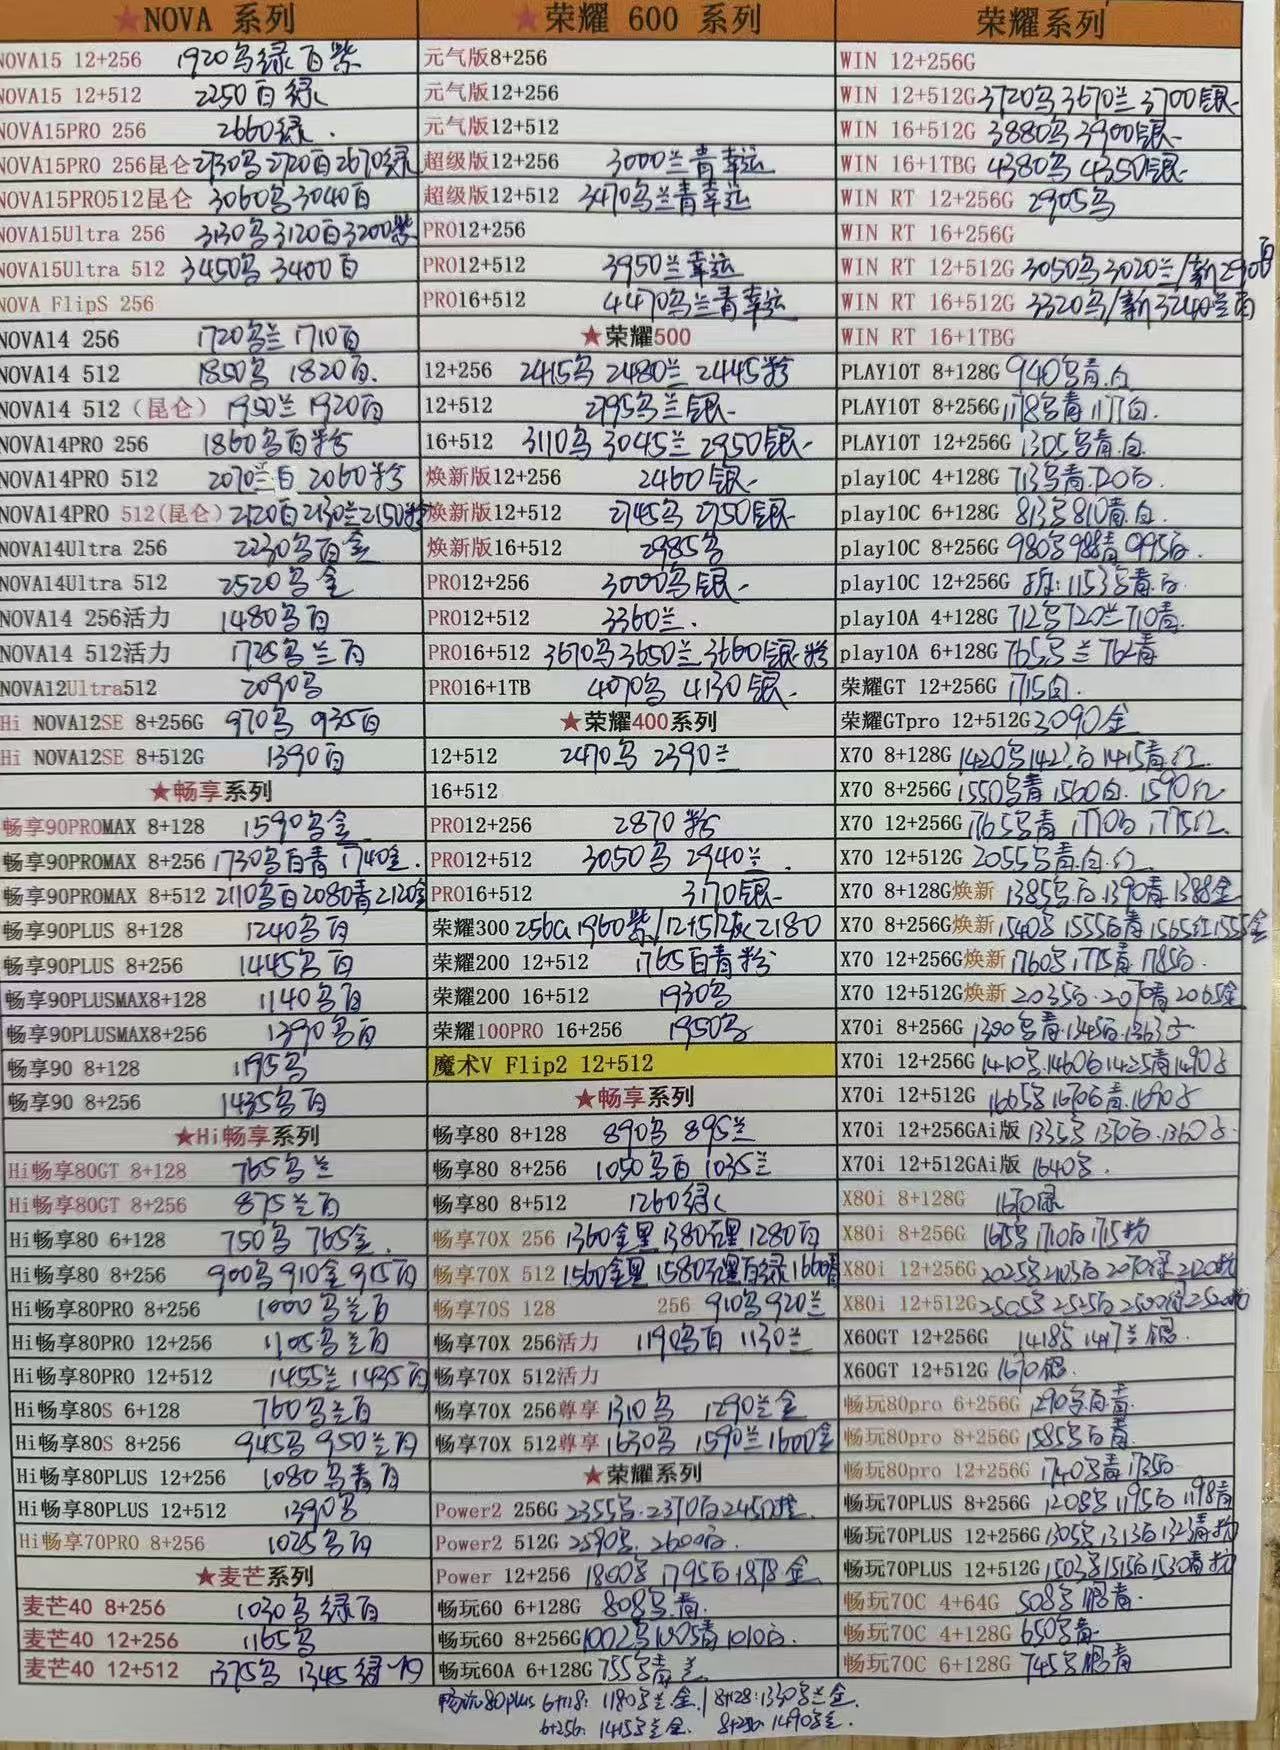 ★NOVA 系列
NOVA15 12+256 1920乌绿百紫
NOVA15 12+512 2250百绿
NOVA15PRO 256 2660绿.
NOVA15PRO 256昆仑 2730乌2720百2670绿
NOVA15PRO512昆仑 3060乌3040百
NOVA15Ultra 256 3130乌3120百3200紫
NOVA15Ultra 512 3450乌 3400百
NOVA FlipS 256
NOVA14 256 1720乌兰 1710百
NOVA14 512 1850乌 1820百.
NOVA14 512（昆仑） 1950兰 1920百
NOVA14PRO 256 1860乌百粉
NOVA14PRO 512 2070兰百 2060粉
NOVA14PRO 512(昆仑) 2120百2130兰2150粉
NOVA14Ultra 256 2230乌百金
NOVA14Ultra 512 2520乌金
NOVA14 256活力 1480乌百
NOVA14 512活力 1725乌兰百
NOVA12Ultra512 2090乌
Hi NOVA12SE 8+256G 970乌 935百
Hi NOVA12SE 8+512G 1390百
★畅享系列
畅享90PROMAX 8+128 1590乌金
畅享90PROMAX 8+256 1730乌百青 1740金.
畅享90PROMAX 8+512 2110乌百2080青2120金
畅享90PLUS 8+128 1240乌百
畅享90PLUS 8+256 1445乌百
畅享90PLUSMAX8+128 1140乌百
畅享90PLUSMAX8+256 1390乌百
畅享90 8+128 1195乌
畅享90 8+256 1435乌百
★Hi畅享系列
Hi畅享80GT 8+128 765乌兰
Hi畅享80GT 8+256 875兰百
Hi畅享80 6+128 750乌 765金.
Hi畅享80 8+256 900乌910金915百
Hi畅享80PRO 8+256 1000乌兰百
Hi畅享80PRO 12+256 1105乌兰百
Hi畅享80PRO 12+512 1455兰 1435百
Hi畅享80S 6+128 760乌兰百
Hi畅享80S 8+256 945乌 950兰百
Hi畅享80PLUS 12+256 1080乌青百
Hi畅享80PLUS 12+512 1390乌
Hi畅享70PRO 8+256 1025乌百
★麦芒系列
麦芒40 8+256 1030乌绿百
麦芒40 12+256 1165乌
麦芒40 12+512 1375乌 1345绿
★荣耀 600 系列
元气版8+256
元气版12+256
元气版12+512
超级版12+256 3000兰青幸运
超级版12+512 3470乌兰青幸运
PRO12+256
PRO12+512 3950兰幸运
PRO16+512 4470乌兰青幸运
★荣耀500
12+256 2415乌 2480兰 2445粉
12+512 2795乌兰银
16+512 3110乌 3045兰 2950银
焕新版12+256 2460银
焕新版12+512 2745乌 2750银
焕新版16+512 2985乌
PRO12+256 3000乌银
PRO12+512 3360兰.
PRO16+512 3670乌3650兰3660银粉
PRO16+1TB 4070乌 4130银
★荣耀400系列
12+512 2470乌 2390兰
16+512
PRO12+256 2870粉
PRO12+512 3050乌 2940兰.
PRO16+512 3170银
荣耀300 256G 1960紫/12+512灰2180
荣耀200 12+512 1765百青粉
荣耀200 16+512 1930乌
荣耀100PRO 16+256 1950乌
魔术V Flip2 12+512
★畅享系列
畅享80 8+128 890乌 895兰
畅享80 8+256 1050乌百 1035兰
畅享80 8+512 1260绿
畅享70X 256 1360金黑 1380石黑 1280百
畅享70X 512 1560金黑 1580石黑百绿1660青
畅享70S 128 256 910乌920兰
畅享70X 256活力 1190乌百 1130兰
畅享70X 512活力
畅享70X 256尊享 1310乌 1290兰金
畅享70X 512尊享 1630乌 1590兰1600金
★荣耀系列
Power2 256G 2355乌.2370百2450橙.
Power2 512G 2590乌. 2600百.
Power 12+256 1800乌 1795百1878金
畅玩60 6+128G 808乌.青.
畅玩60 8+256G 1002乌1005青1010百.
畅玩60A 6+128G 755乌青兰
畅玩80plus 6+128: 1180乌兰.金./8+128:1330乌兰金.
6+256: 1415乌兰金. 8+256: 1490乌金.
荣耀系列
WIN 12+256G
WIN 12+512G 3720乌3670兰3700银
WIN 16+512G 3880乌3900银
WIN 16+1TBG 4380乌 4350银
WIN RT 12+256G 2905乌
WIN RT 16+256G
WIN RT 12+512G 3050乌3020兰/新2900百
WIN RT 16+512G 3320乌/新3240兰百
WIN RT 16+1TBG
PLAY10T 8+128G 940乌青.白
PLAY10T 8+256G 1178乌青1177白.
PLAY10T 12+256G 1305乌青.白
play10C 4+128G 713乌青.720百.
play10C 6+128G 813乌810青.白
play10C 8+256G 980乌988青995百.
play10C 12+256G 拆:1153乌青.百.
play10A 4+128G 712乌720兰710青.
play10A 6+128G 765乌兰762青
荣耀GT 12+256G 1715白.
荣耀GTpro 12+512G 3090金
X70 8+128G 1420乌1423百1415青.红.
X70 8+256G 1550乌青1560白.1590红
X70 12+256G 1765乌青1770百1775红.
X70 12+512G 2055乌青.白.红
X70 8+128G焕新 1385乌.百.1390青.1388金
X70 8+256G焕新 1540乌1555百青1565红1555金
X70 12+256G焕新 1760乌.1775青1785百.
X70 12+512G焕新 2035百.2070青2065金
X70i 8+256G 1300乌青.1345百.1363
X70i 12+256G 1410乌.1460百1425青1490
X70i 12+512G 1665乌1670百青.1690
X70i 12+256GAi版 1335乌1370百.1360
X70i 12+512GAi版 1640乌.
X80i 8+128G 1670绿
X80i 8+256G 1675乌1710百1715粉
X80i 12+256G 2025乌2105百2070绿2120粉
X80i 12+512G 2505乌2525百2500绿2520粉
X60GT 12+256G 1418乌1417兰银.
X60GT 12+512G 1670银.
畅玩80pro 6+256G 1290乌百青
畅玩80pro 8+256G 1585乌百青.
畅玩80pro 12+256G 1740乌青1735百
畅玩70PLUS 8+256G 1205乌1195百1198青
畅玩70PLUS 12+256G 1305乌1313百1323青粉
畅玩70PLUS 12+512G 1503乌1515百1530青粉
畅玩70C 4+64G 508乌鹏青.
畅玩70C 4+128G 650乌青
畅玩70C 6+128G 745乌鹏青